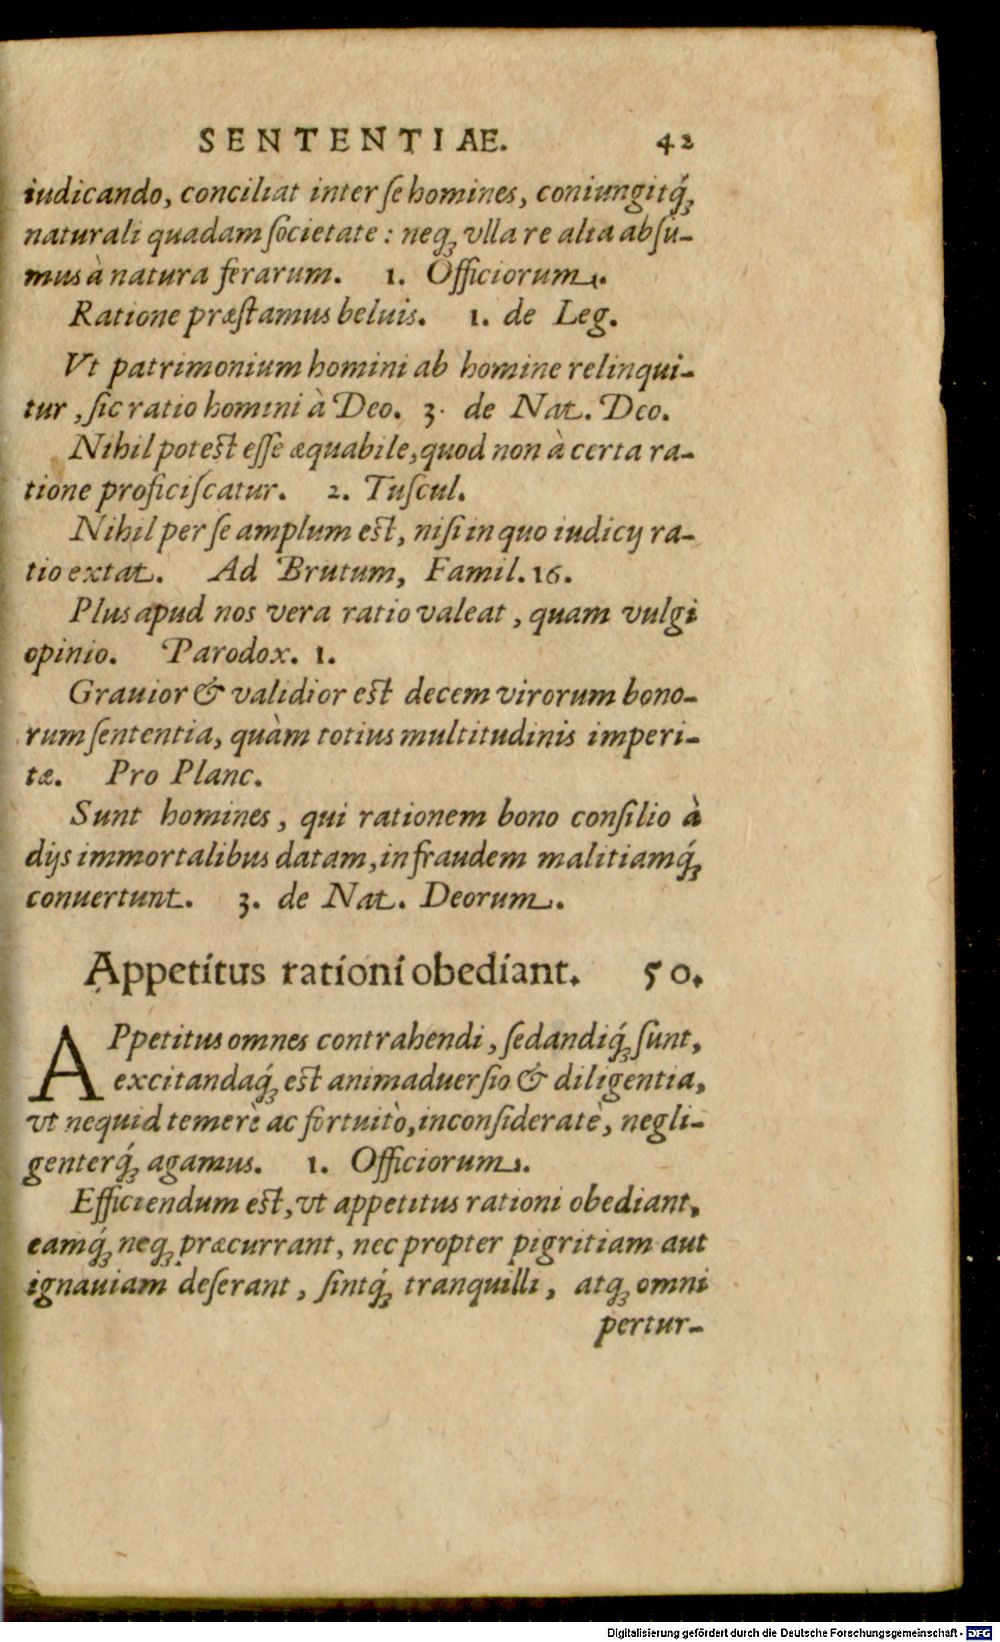 SENTENTIAE. 42
iudicando, conciliat inter ſe homines, coniungitq́;
naturali quadam ſocietate : neq; vlla re alia abſu-
mus à natura ferarum. 1. Officiorum.
Ratione præſtamus beluis. 1. de Leg.
Vt patrimonium homini ab homine relinqui-
tur, ſic ratio homini à Deo. 3. de Nat. Deo.
Nihil potest eſſe æquabile, quod non à certa ra-
tione proficiſcatur. 2. Tuſcul.
Nihil per ſe amplum est, niſi in quo iudicij ra-
tio extat. Ad Brutum, Famil. 16.
Plus apud nos vera ratio valeat, quam vulgi
opinio. Parodox. 1.
Grauior & validior est decem virorum bono-
rum ſententia, quàm totius multitudinis imperi-
tæ. Pro Planc.
Sunt homines, qui rationem bono conſilio à
dijs immortalibus datam, in fraudem malitiamq́;
conuertunt. 3. de Nat. Deorum.
Appetitus rationi obediant. 50.
APpetitus omnes contrahendi, ſedandiq́; ſunt,
excitandaq́; est animaduerſio & diligentia,
vt nequid temerè ac fortuitò, inconſideratè, negli-
genterq́; agamus. 1. Officiorum.
Efficiendum est, vt appetitus rationi obediant,
eamq́; neq; præcurrant, nec propter pigritiam aut
ignauiam deſerant, ſintq́; tranquilli, atq; omni
pertur-
Digitalisierung gefördert durch die Deutsche Forschungsgemeinschaft - DFG